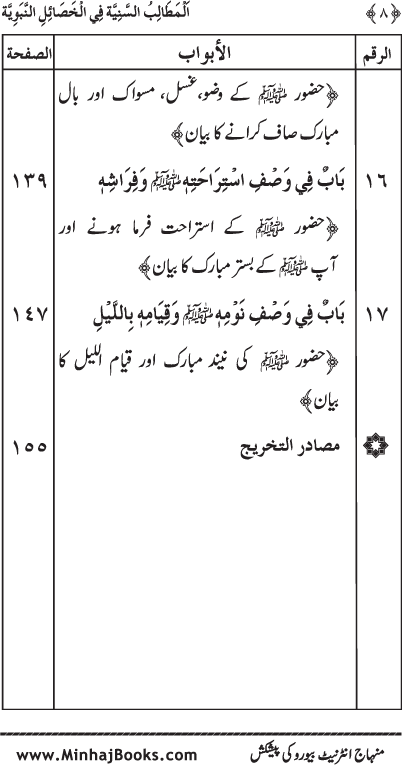 ﴿٨﴾ اَلْمَطَالِبُ السَّنِيَّة فِي الْخَصَائِلِ النَّبَوِيَّة
الرقم الأبواب الصفحة
﴿حضور ﷺ کے وضو، غسل، مسواک اور بال
مبارک صاف کرانے کا بیان﴾
١٦ بَابٌ فِي وَصْفِ اسْتِرَاحَتِهِ ﷺ وَفِرَاشِهِ ١٣٩
﴿حضور ﷺ کے استراحت فرما ہونے اور
آپ ﷺ کے بستر مبارک کا بیان﴾
١٧ بَابٌ فِي وَصْفِ نَوْمِهِ ﷺ وَقِيَامِهِ بِاللَّيْلِ ١٤٧
﴿حضور ﷺ کی نیند مبارک اور قیام اللیل کا
بیان﴾
مصادر التخريج ١٥٥
منہاج انٹرنیٹ بیورو کی پیشکش www.MinhajBooks.com